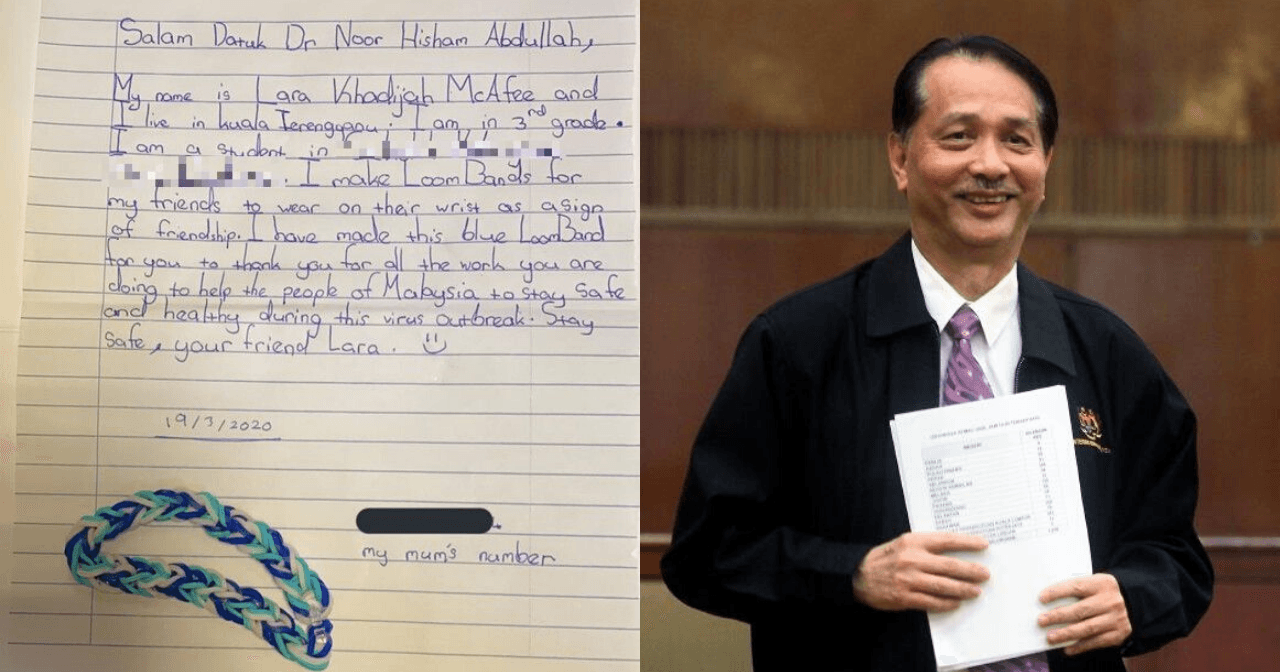 Salam Datuk Dr Noor Hisham Abdullah,
My name is Lara Khadijah McAfee and
I live in kuala Terengganu; I am in 3rd grade.
I am a student in
. I make LoomBands for
my friends to wear on their wrist as a sign
of friendship. I have made this blue LoomBand
for you to thank you for all the work you are
doing to help the people of Malaysia to stay safe
and healthy during this virus outbreak. Stay
safe, your friend Lara.
19/3/2020
my mum's number